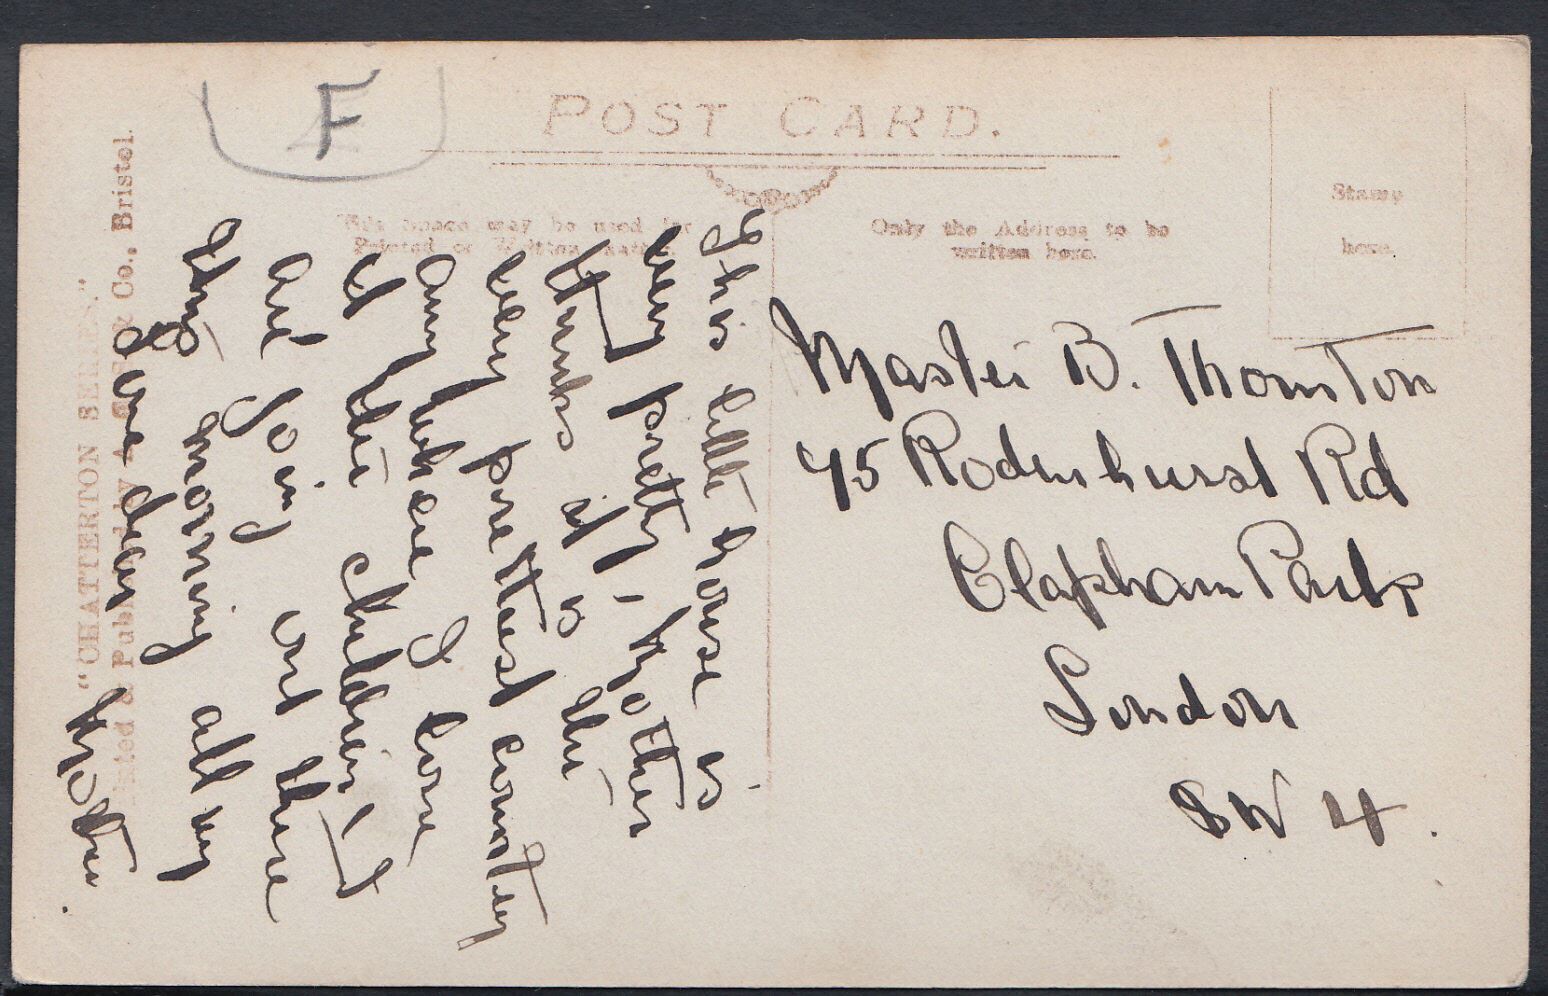 POST CARD.
This Space may be used for
Printed or Written Matter.
Only the Address to be
written here.
Stamp
here.
F
"CHATTERTON SERIES."
Printed & Published by & Co., Bristol.
This little house is
very pretty, Mother
thinks it is the
very prettiest country
any where I love
it the children & I
are going out there
this morning all my
love dear
Mother
Master B. Thornton
45 Rodenhurst Rd
Clapham Park
London
SW 4.